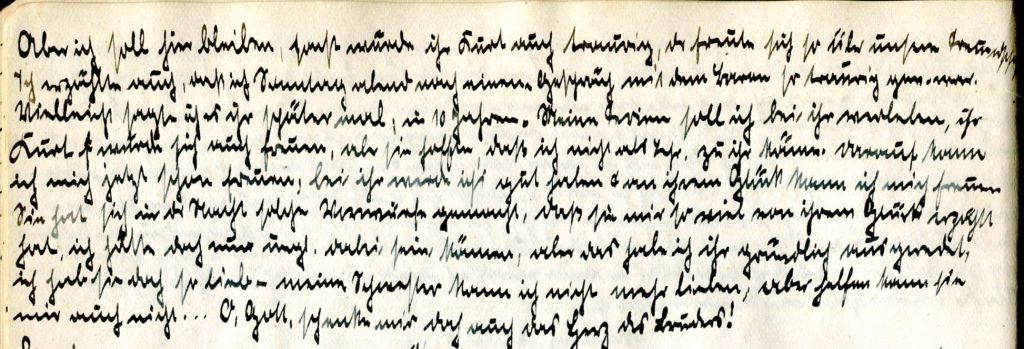 Aber ich soll hier bleiben, sonst würde ihr Kurt auch traurig, er freute sich so über unsere Freundschaft
Ich erzählte auch, daß ich Sonntag abend nach einem Gespräch mit dem Baron so traurig gew. war.
Vielleicht sagte ich es ihr später mal, in 10 Jahren. Meine Ferien soll ich bei ihr verleben, ihr
Kurt würde sich auch freuen, aber sie hoffte, daß ich nicht als zu ihr käme. Darauf kann
ich mich jetzt schon freuen, bei ihr werde ich's gut haben & an ihrem Glück kann ich mich freuen
Sie hat sich in der Nacht solche Vorwürfe gemacht, daß sie mir so viel von ihrem Glück erzählt
hat, ich hätte doch nur dabei sein können, aber das habe ich ihr gründlich ausgeredet,
ich hab sie doch so lieb - meine Schwester kann ich nicht mehr lieben, aber helfen kann sie
mir auch nicht... O, Gott, schenke mir doch auch das Herz des Bruders!